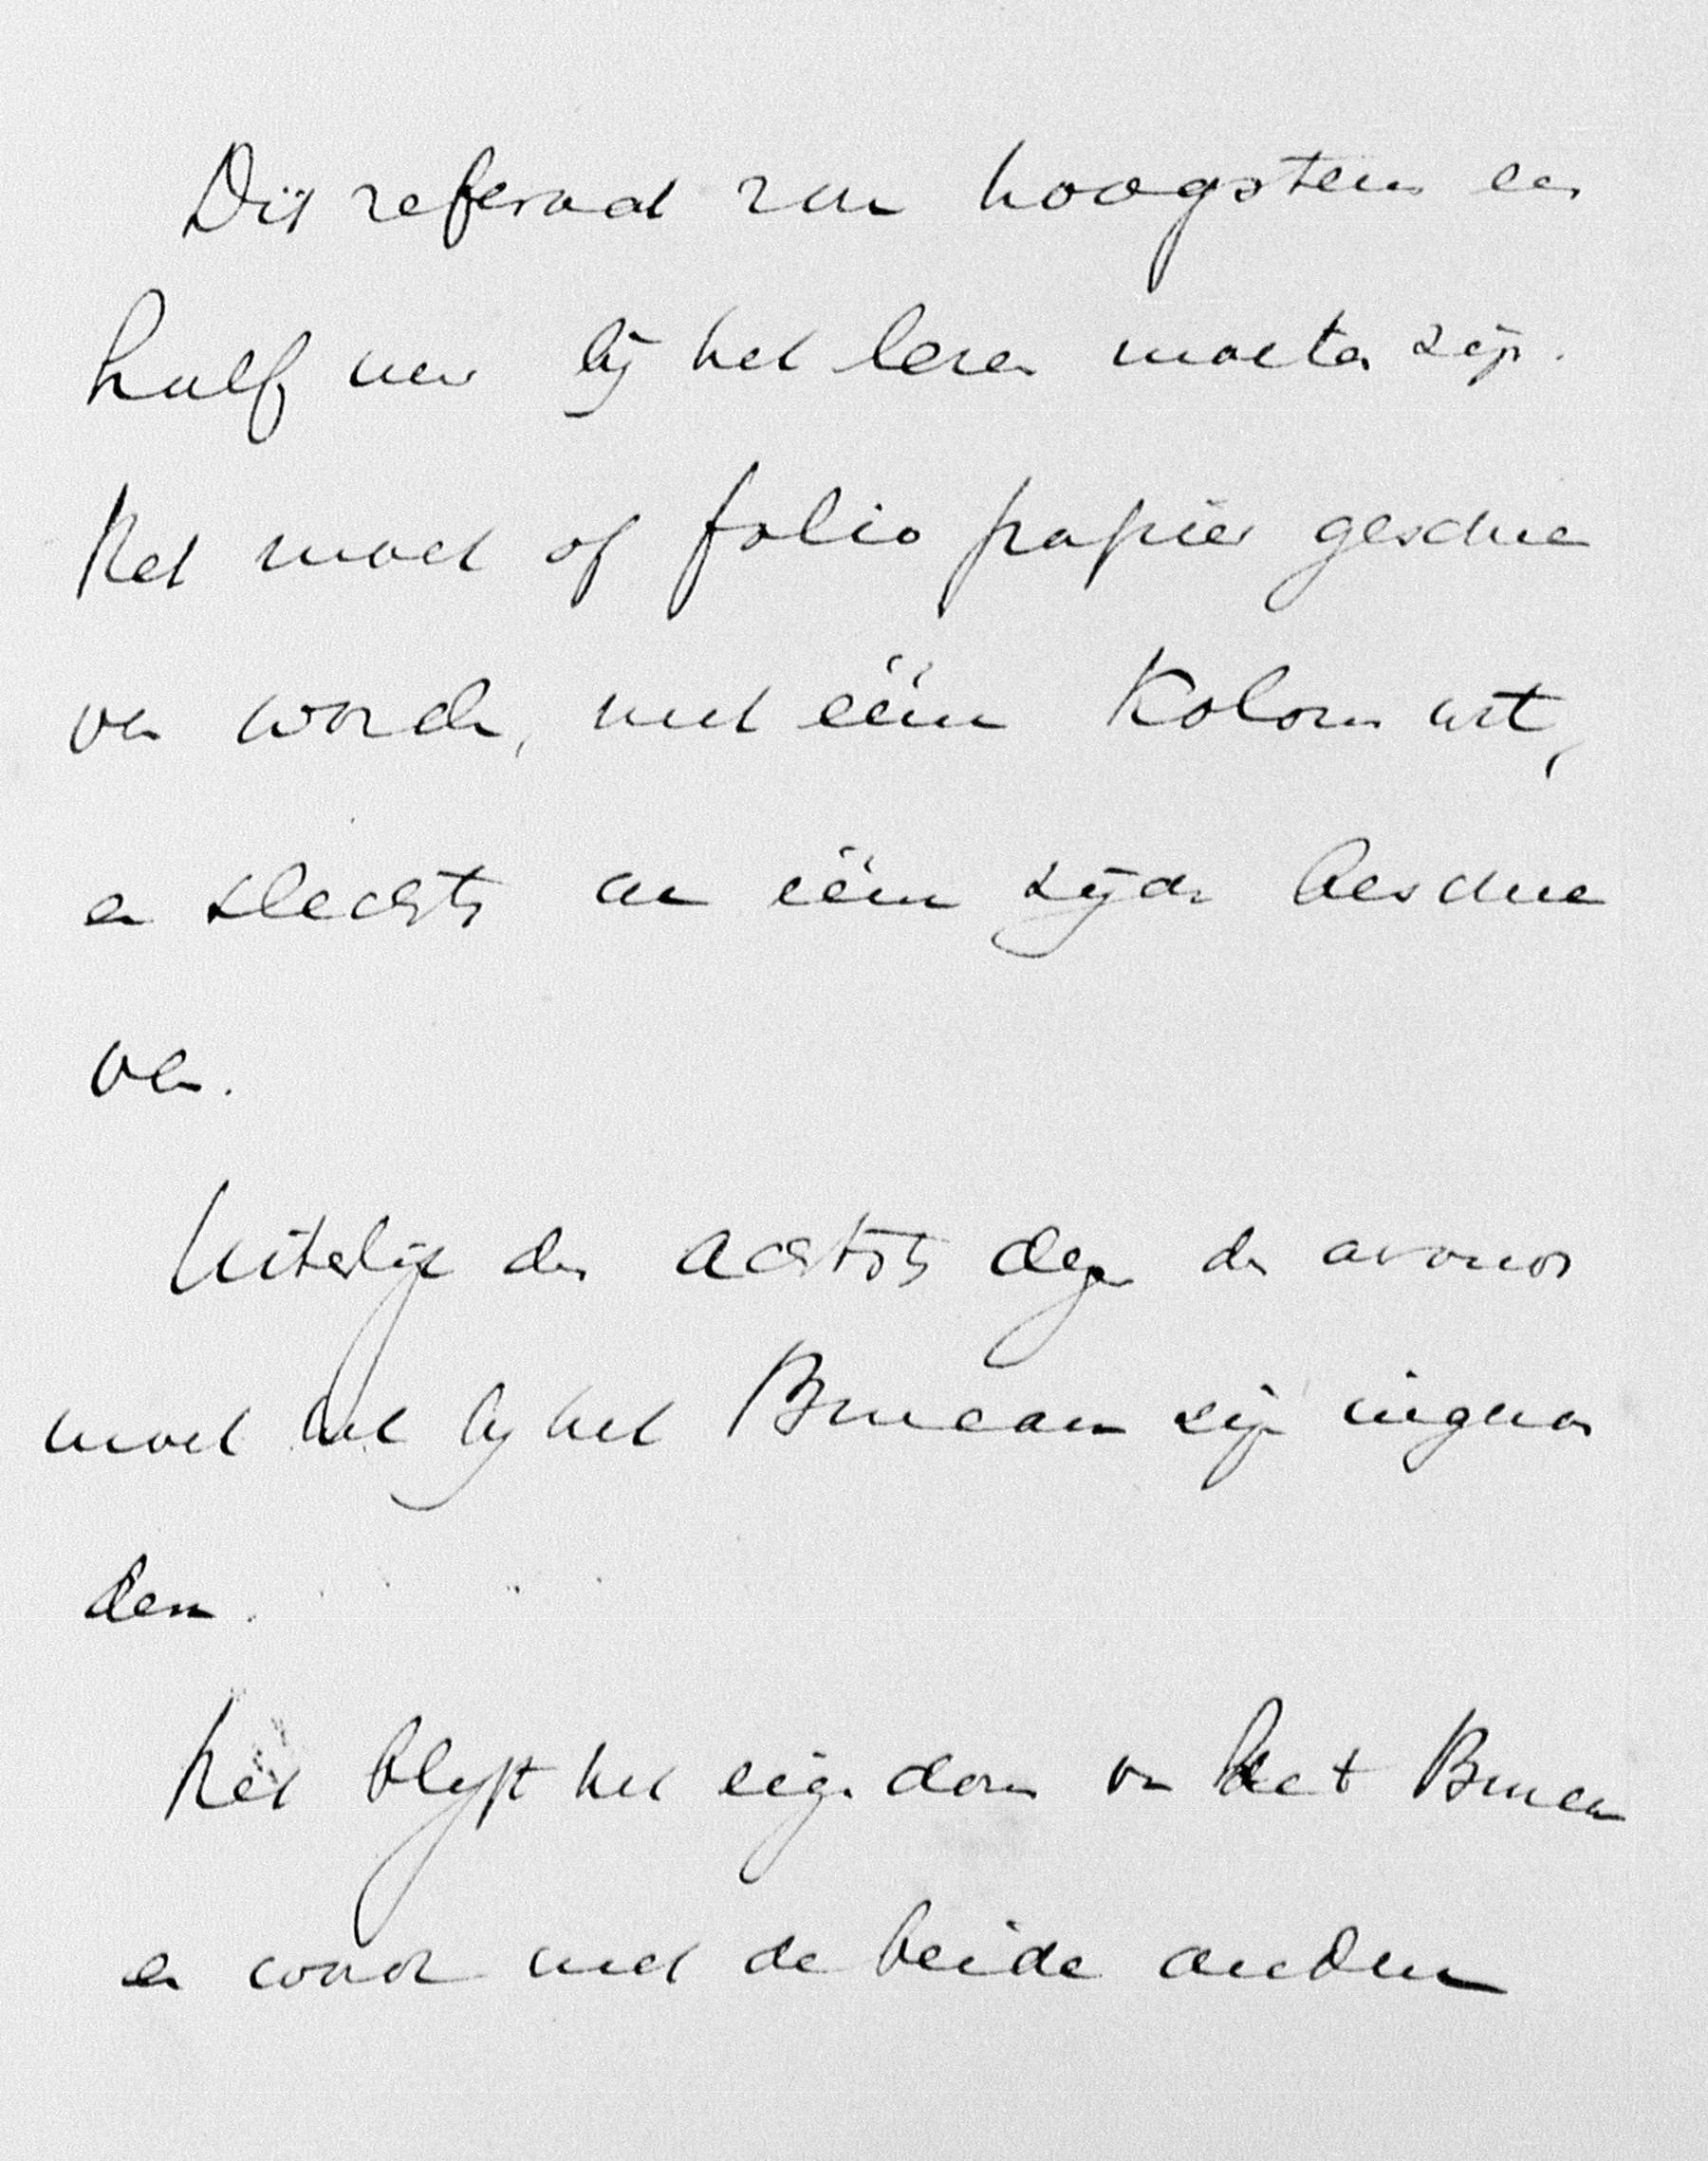 Dit referaat zou hoogstens een
half uur bij het lezen moeten zijn.
Het moet op folio papier geschre
ven worden, met één kolom wit,
en slechts aan één zijde beschre
ven.
Uiterlijk den achtsten dag den avond
moet het bij het Bureau zijn ingezon
den.
Het blijft het eigendom van het Bureau
en wordt met de beide anderen